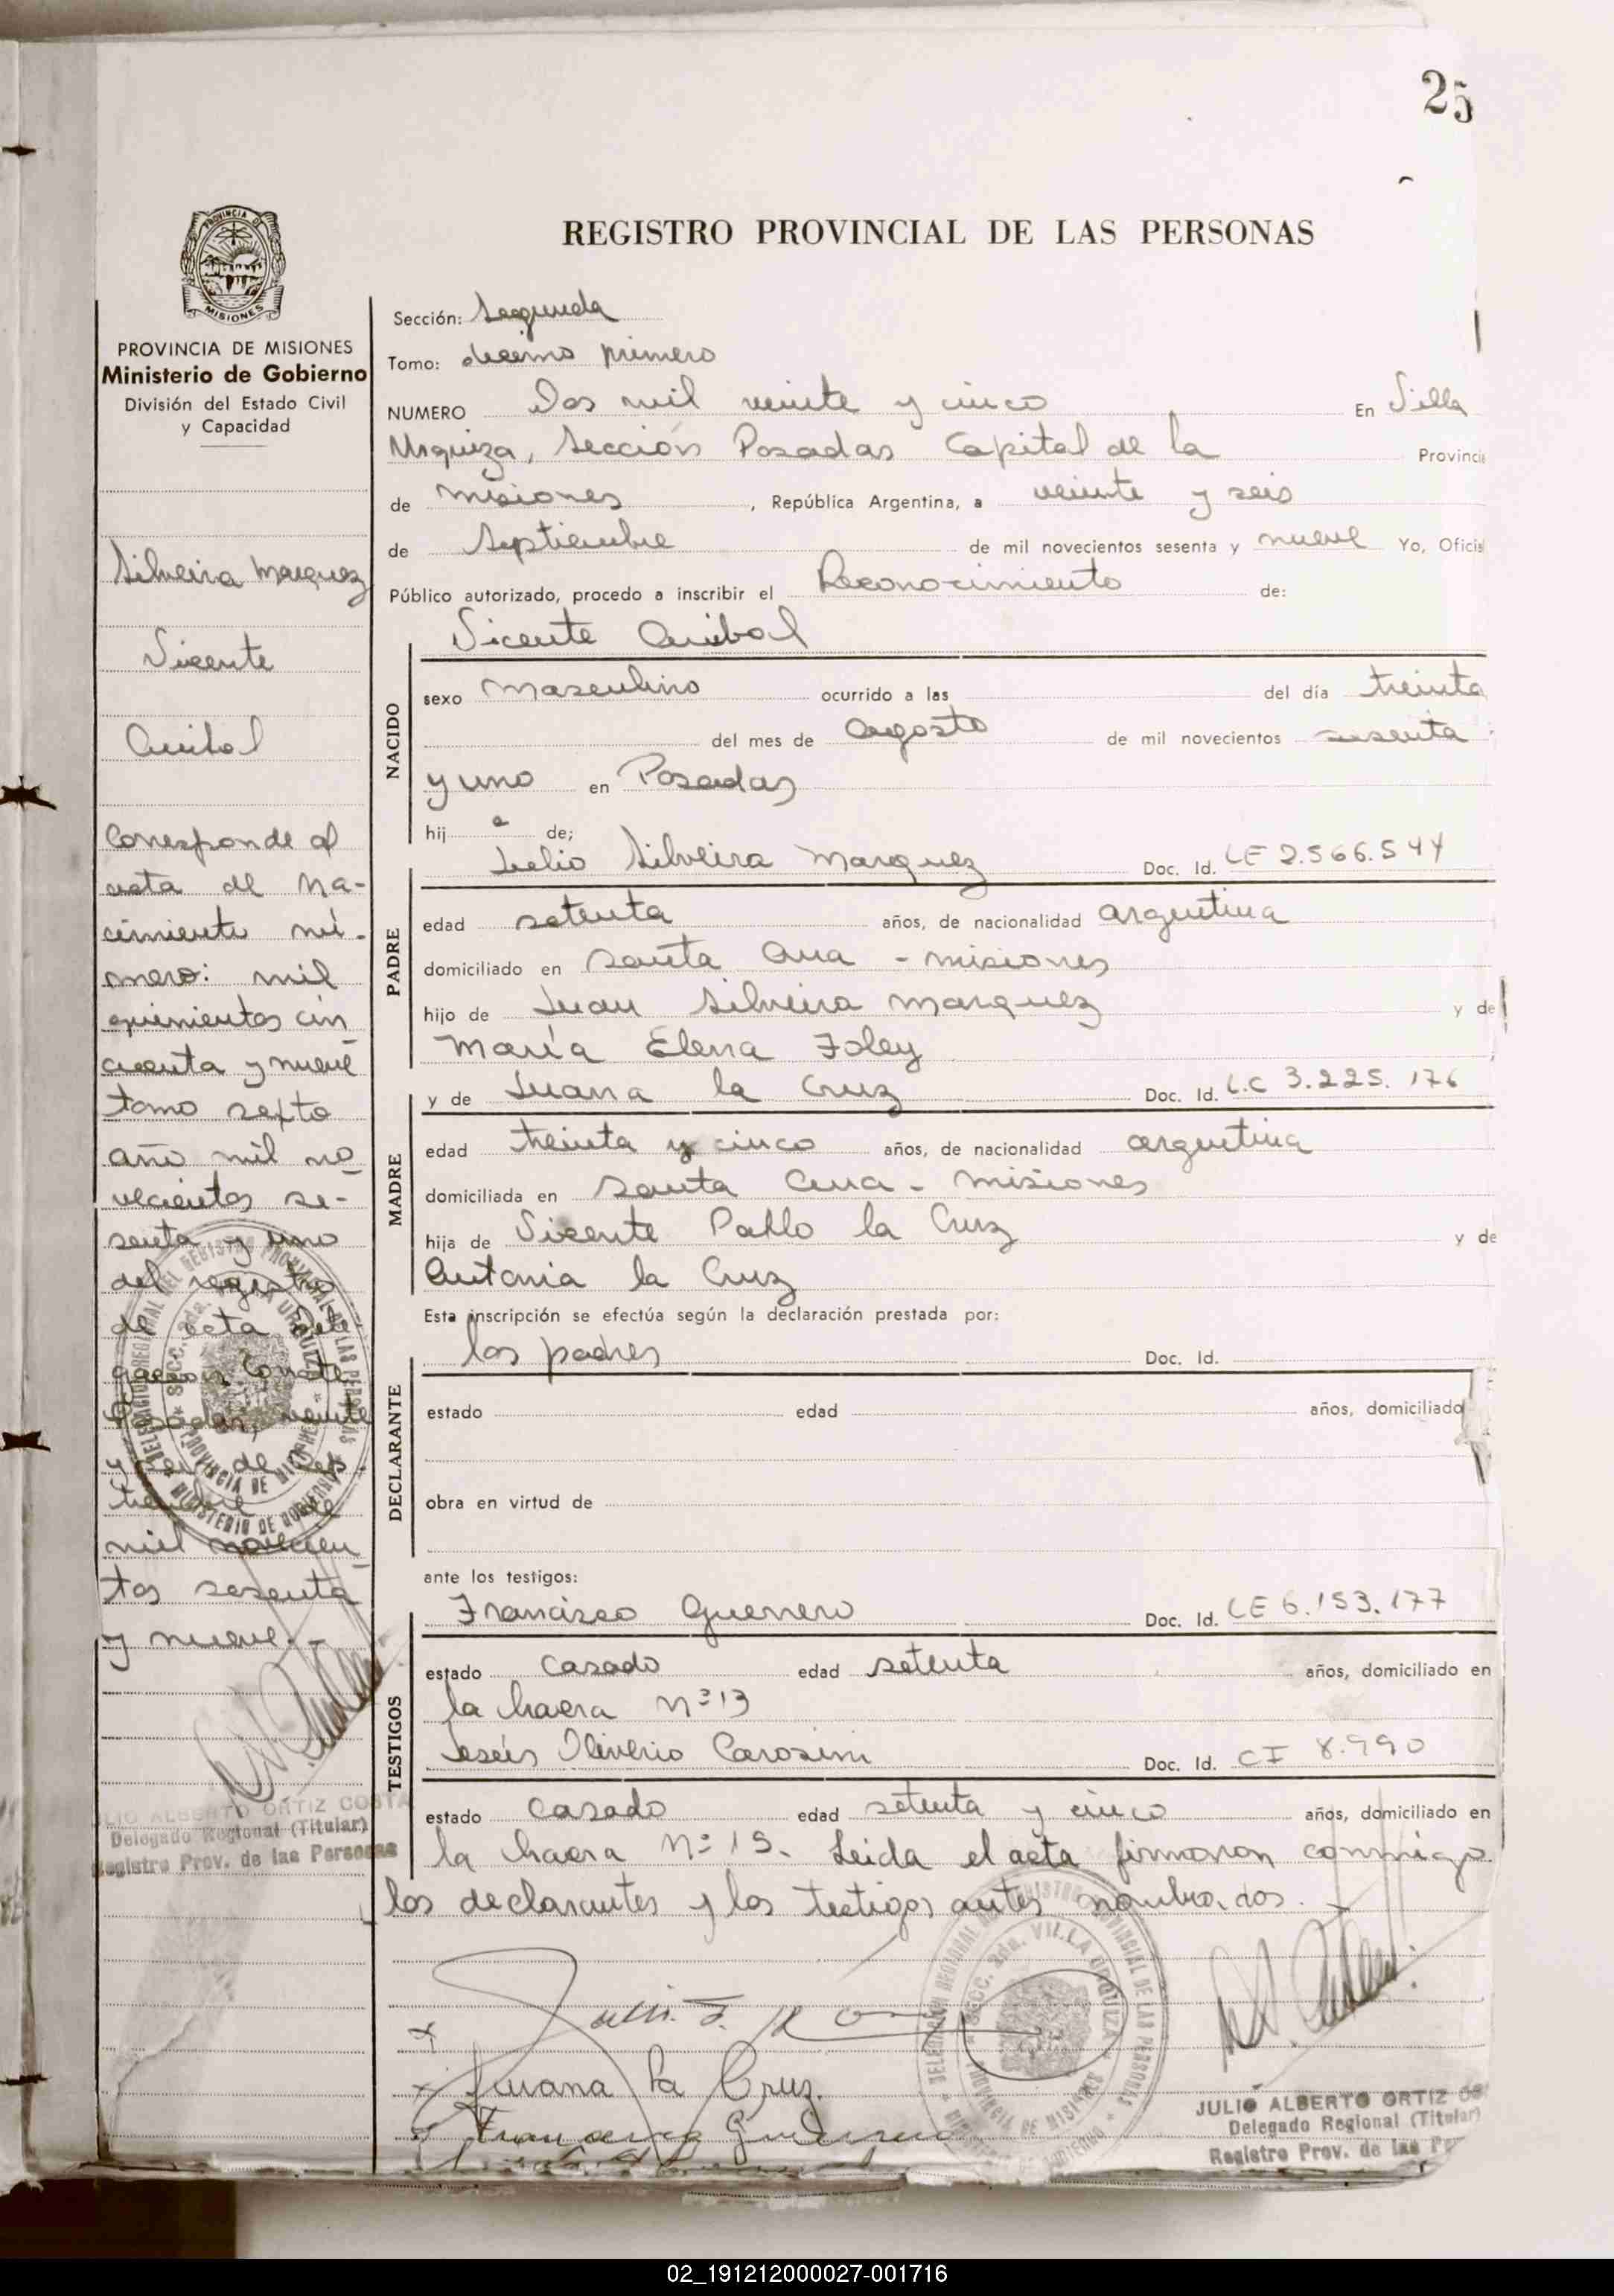 25
REGISTRO PROVINCIAL DE LAS PERSONAS
PROVINCIA DE MISIONES
PROVINCIA DE MISIONES
Ministerio de Gobierno
División del Estado Civil
y Capacidad
Silveira Marquez
Vicente
Anibal
Corresponde al
acta de na-
cimiento nú-
mero: mil
quinientos cin
cuenta y nueve
tomo sexto
año mil no
vecientos se-
senta y uno
del registro
de esta
Conste
Posadas, veinte
y seis de sep
tiembre de
mil novecien
tos sesenta
y nueve.-
JULIO ALBERTO ORTIZ COSTA
Delegado Regional (Titular)
Registro Prov. de las Personas
Sección: Segunda
Tomo: decimo primero
NUMERO Dos mil veinte y cinco En Villa
Urquiza, Sección Posadas Capital de la Provincia
de Misiones, República Argentina, a veinte y seis
de Septiembre de mil novecientos sesenta y nueve Yo, Oficial
Público autorizado, procedo a inscribir el Reconocimiento de:
NACIDO
Vicente Anibal
sexo masculino ocurrido a las del día treinta
del mes de Agosto de mil novecientos sesenta
y uno en Posadas
hij o de;
PADRE
Julio Silveira Marquez Doc. Id. LE 2.566.544
edad setenta años, de nacionalidad argentina
domiciliado en Santa Ana - Misiones
hijo de Juan Silveira Marquez y de
María Elena Foley
MADRE
y de Juana la Cruz Doc. Id. L.C 3.225.176
edad treinta y cinco años, de nacionalidad argentina
domiciliada en Santa Ana - Misiones
hija de Vicente Pablo la Cruz y de
Antonia la Cruz
Esta inscripción se efectúa según la declaración prestada por:
DECLARANTE
los padres Doc. Id.
estado edad años, domiciliado
obra en virtud de
ante los testigos:
TESTIGOS
Francisco Guerrero Doc. Id. LE 6.153.177
estado casado edad setenta años, domiciliado en
la chacra Nº 13
Jesús Oliverio Carosini Doc. Id. CI 8.990
estado casado edad setenta y cinco años, domiciliado en
la chacra Nº 15. Leida el acta firmaron conmigo
los declarantes y los testigos antes nombrados.
Juana la Cruz.
Francisco Guerrero
JULIO ALBERTO ORTIZ
Delegado Regional (Titular)
Registro Prov. de las
02_191212000027-001716